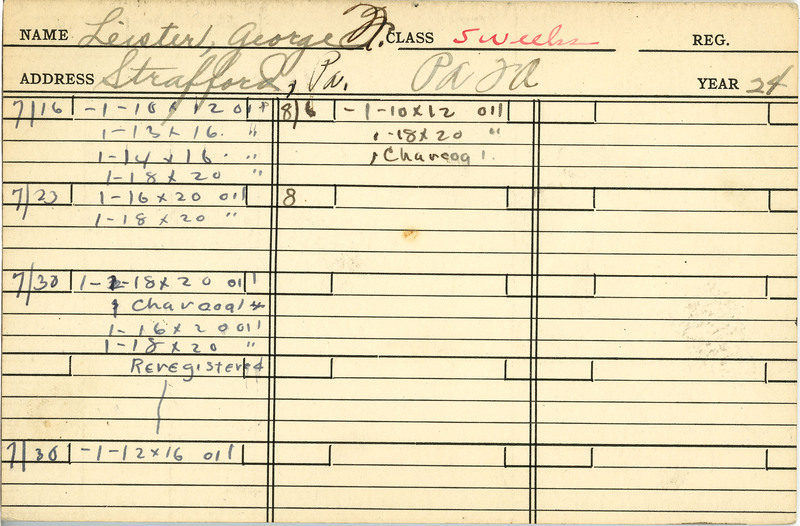 NAME Leister, George W. CLASS 5 Weeks REG.
ADDRESS Strafford, Pa. PaFA YEAR 24
7/16 -1-10 x 12 oil
1-13 x 16 "
1-14 x 16 "
1-18 x 20 "
7/23 1-16 x 20 oil
1-18 x 20 "
7/30 1-2-18 x 20 oil
1 Charcoal
1-16 x 20 oil
1-18 x 20 "
Reregistered
7/30 -1-12x16 oil
8/6 -1-10x12 oil
1-18x20 "
1 Charcoal
8